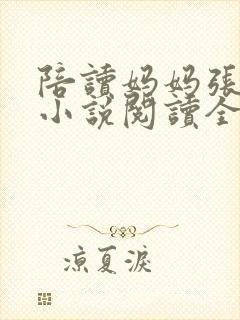 陪讀媽媽張
小說閱讀全
涼夏淚